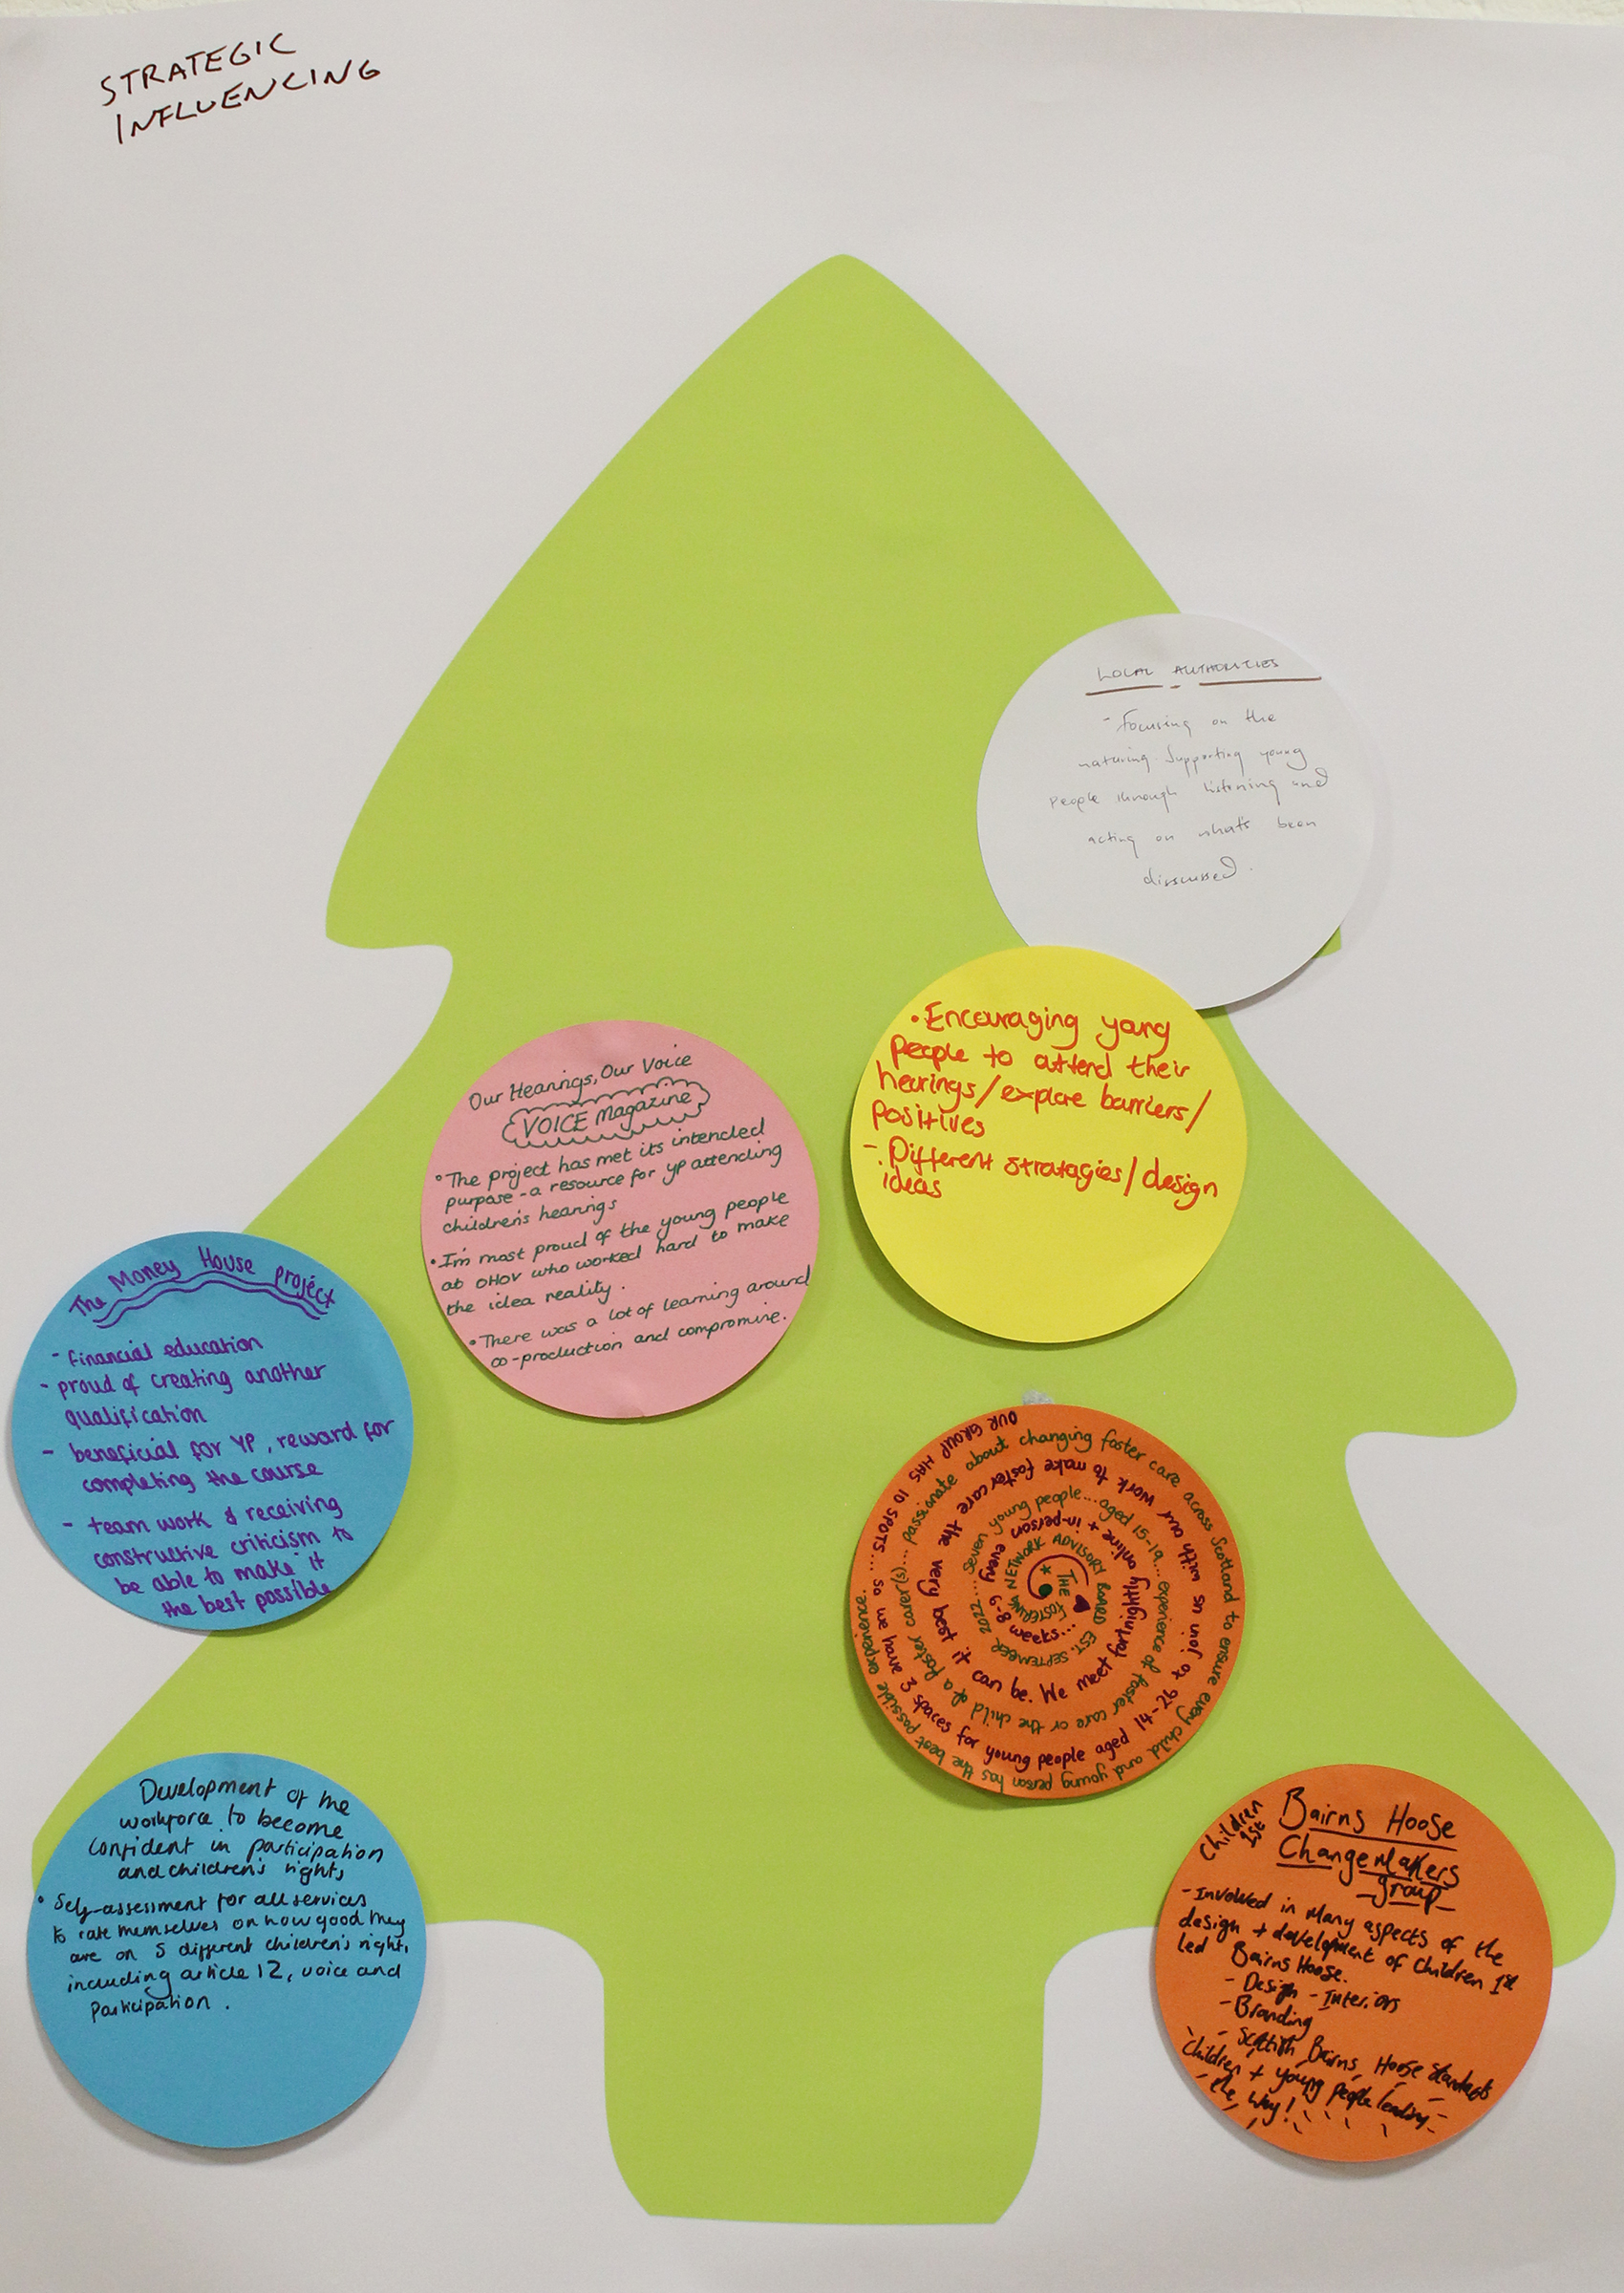 STRATEGIC
INFLUENCING
LOCAL AUTHORITIES
- Focusing on the
naturing Supporting young
people through listening and
acting on what's been
disscussed.
• Encouraging young
people to attend their
hearings/explore barriers/
positives
- Different stratagies/design
ideas
Our Hearings, Our Voice
VOICE Magazine
• The project has met its intended
purpose - a resource for YP attending
children's hearings
• I'm most proud of the young people
at OHOV who worked hard to make
the idea reality.
• There was a lot of learning around
co-production and compromise.
The Money House project
- financial education
- proud of creating another
qualification
- beneficial for YP, reward for
completing the course
- team work & receiving
constructive criticism to
be able to make it
the best possible
THE FOSTERING NETWORK ADVISORY BOARD EST. SEPTEMBER 2022... seven young people... aged 15-19... experience of foster care or the child of a foster carer(s)... passionate about changing foster care across Scotland to ensure every child and young person has the best possible experience.
OUR GROUP HAS 10 SPOTS... so we have 3 spaces for young people aged 14-26 to join us with our work to make foster care the very best it can be. We meet fortnightly online + in-person every 8-9 weeks...
Development of the
workforce to become
confident in participation
and children's rights
• Self-assessment for all services
to rate themselves on how good they
are on 5 different children's rights,
including article 12, voice and
participation.
Children
1st
Bairns Hoose
ChangeMakers
group
- Involved in Many aspects of the
design + development of Children 1st
led Bairns Hoose.
- Design - Interiors
- Branding
- Scottish Bairns Hoose Standards
Children + young people leading
the way!